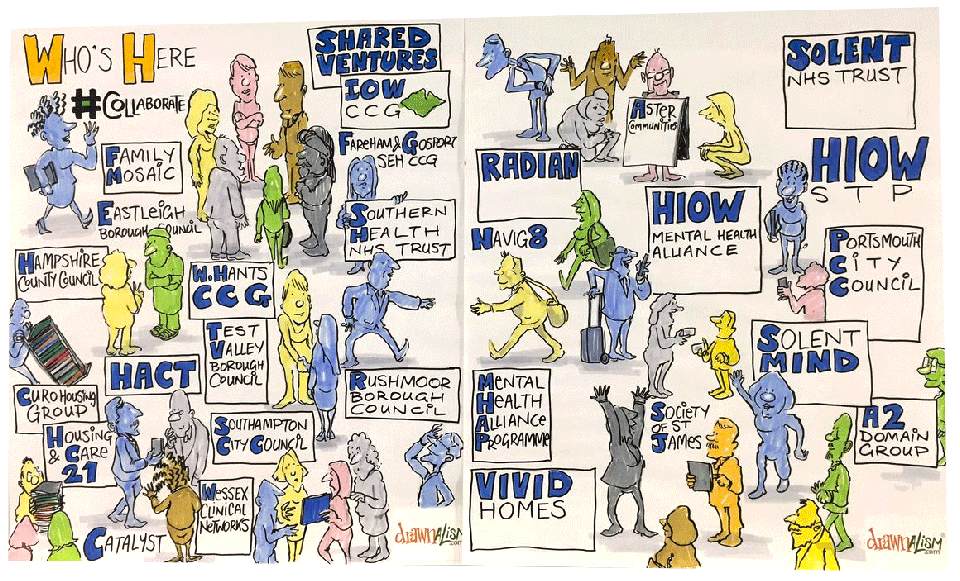 WHO'S HERE
#COLLABORATE
SHARED
VENTURES
IOW
CCG
FAREHAM & GOSPORT
SEH CCG
FAMILY
MOSAIC
EASTLEIGH
BOROUGH COUNCIL
SOUTHERN
HEALTH
NHS TRUST
HAMPSHIRE
COUNTY COUNCIL
W. HANTS
CCG
TEST
VALLEY
BOROUGH
COUNCIL
HACT
RUSHMOOR
BOROUGH
COUNCIL
CURO HOUSING
GROUP
HOUSING
& CARE
21
SOUTHAMPTON
CITY COUNCIL
WESSEX
CLINICAL
NETWORKS
CATALYST
drawnALISM
.com
ASTER
COMMUNITIES
SOLENT
NHS TRUST
RADIAN
HIOW
STP
HIOW
MENTAL HEALTH
ALLIANCE
NAVIG8
PORTSMOUTH
CITY
COUNCIL
SOLENT
MIND
MENTAL
HEALTH
ALLIANCE
PROGRAMME
SOCIETY
OF ST
JAMES
A2
DOMAIN
GROUP
VIVID
HOMES
drawnALISM
.com